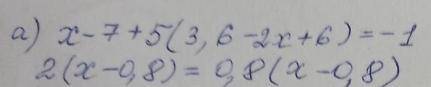 а) x-7+5(3,6-2x+6)=-1
2(x-0,8)=0,8(x-0,8)